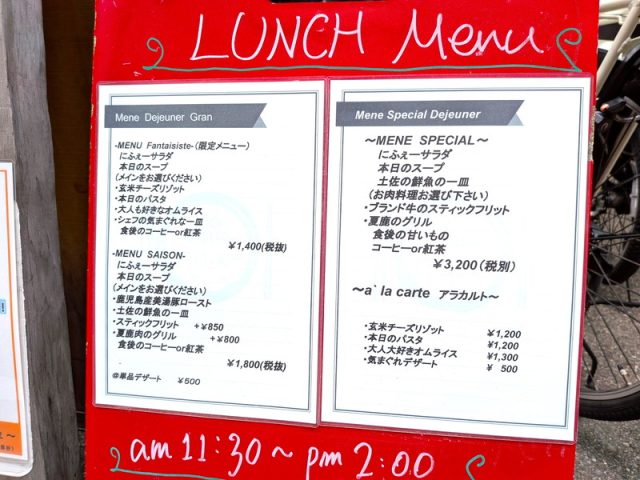 LUNCH Menu
Mene Dejeuner Gran
-MENU Fantaisiste-(限定メニュー)
にふぇーサラダ
本日のスープ
(メインをお選びください)
・玄米チーズリゾット
・本日のパスタ
・大人も好きなオムライス
・シェフの気まぐれな一皿
食後のコーヒーor紅茶
￥1,400(税抜)
-MENU SAISON-
にふぇーサラダ
本日のスープ
(メインをお選びください)
・鹿児島産美湯豚ロースト
・土佐の鮮魚の一皿
・スティックフリット +￥850
・夏鹿肉のグリル +￥800
食後のコーヒーor紅茶
￥1,800(税抜)
@単品デザート ￥500
Mene Special Dejeuner
～MENE SPECIAL～
にふぇーサラダ
本日のスープ
土佐の鮮魚の一皿
(お肉料理お選び下さい)
・ブランド牛のスティックフリット
・夏鹿のグリル
食後の甘いもの
コーヒーor紅茶
￥3,200(税別)
～a` la carte アラカルト～
・玄米チーズリゾット ￥1,200
・本日のパスタ ￥1,200
・大人大好きオムライス ￥1,300
・気まぐれデザート ￥ 500
am 11:30～pm 2:00